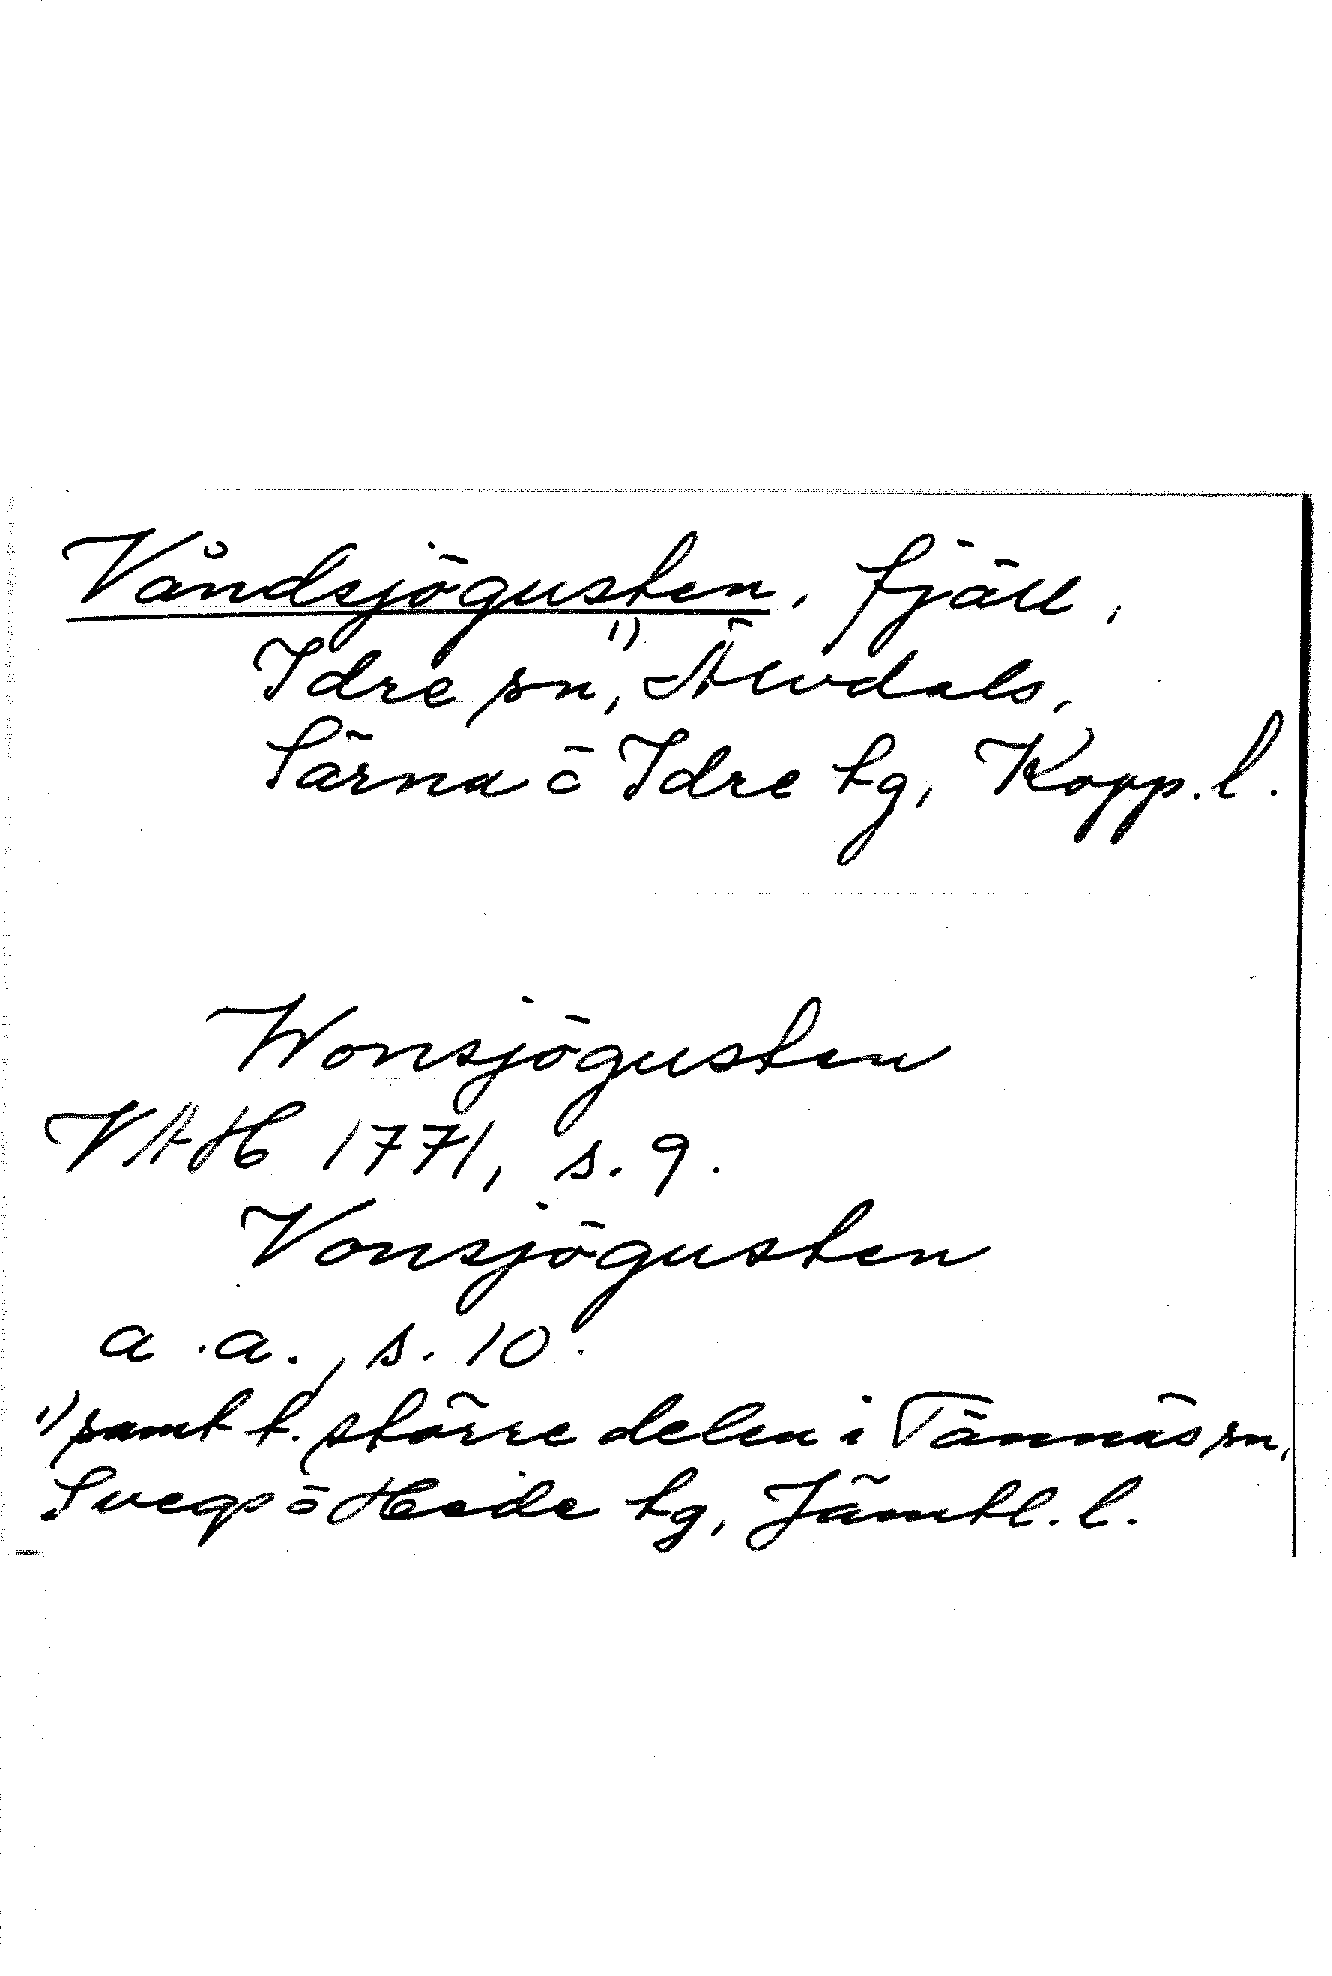 Våndsjögusten, fjäll,
Idre sn¹⁾, Älvdals,
Särna ō Idre tg, Kopp. l.
Wonsjögusten
VAH 1771, s. 9.
Vonsjögusten
a.a., s. 10.
¹⁾ samt t. större delen i Tännäs sn,
Svegs ō Hede tg, Jämtl. l.